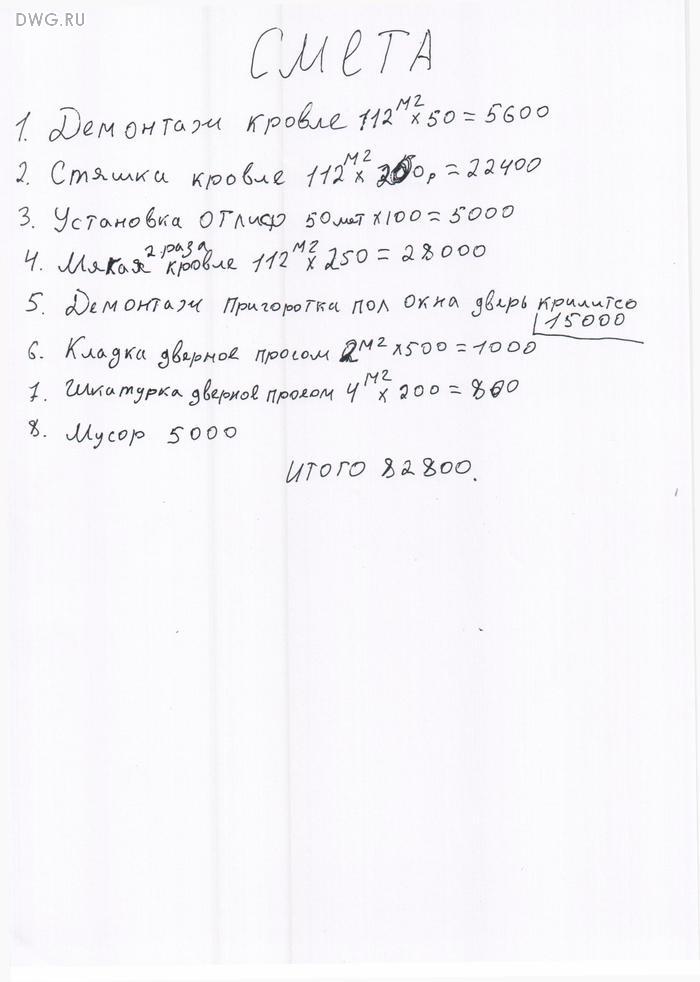 DWG.RU
СМЕТА
1. Демонтаж кровле 112 м2 x 50 = 5600
2. Стяшки кровле 112 м2 x 200р = 22400
3. Установка отлиф 50 мет x 100 = 5000
4. Мякая 2 раза кровле 112 м2 x 250 = 28000
5. Демонтаж пригоротка пол окна дверь крилитсо
15000
6. Кладка дверное просом 2 м2 x 500 = 1000
7. Шкатурка дверное проеом 4 м2 x 200 = 800
8. Мусор 5000
ИТОГО 82800.